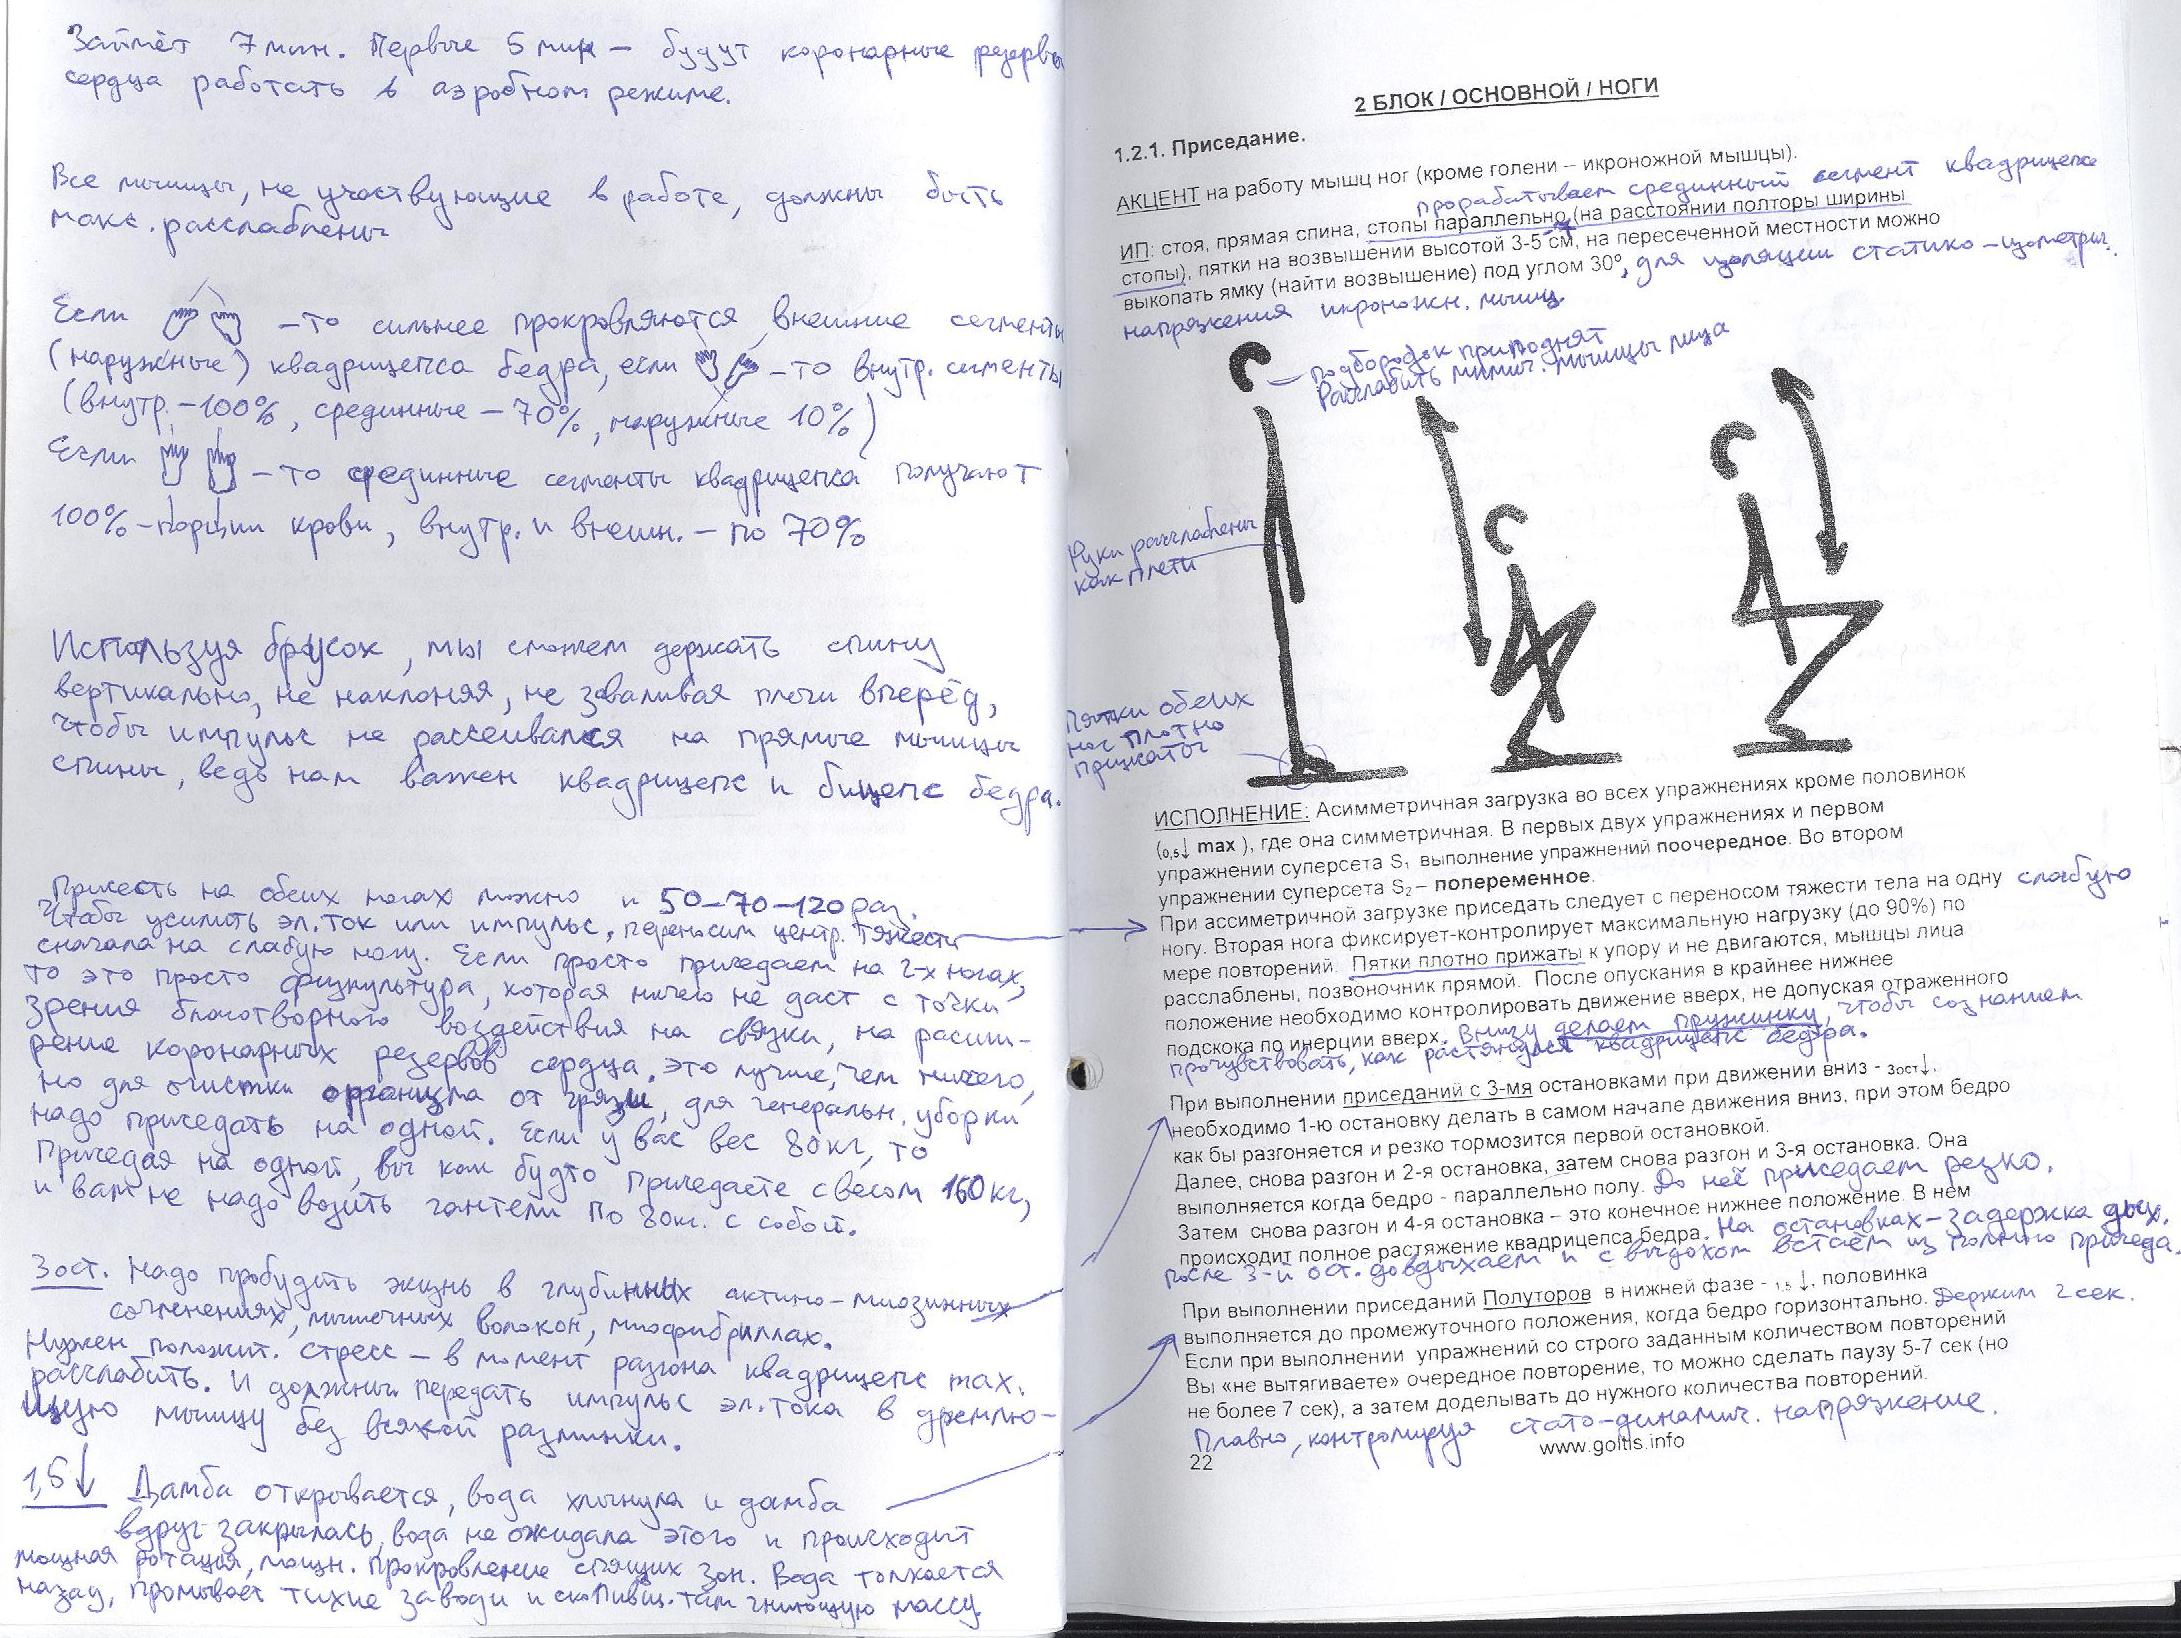 Займёт 7 мин. Первые 5 мин – будут коронарные резервы
сердца работать в аэробном режиме.
Все мышцы, не участвующие в работе, должны быть
макс. расслаблены
Если – то сильнее прокровляются внешние сегменты
(наружные) квадрицепса бедра, если – то внутр. сегменты
(внутр. – 100%, срединные – 70%, наружные 10%)
Если – то срединные сегменты квадрицепса получают
100% – порции крови, внутр. и внешн. – по 70%
Используя брусок, мы сможем держать спину
вертикально, не наклоняя, не заваливая плечи вперёд,
чтобы импульс не рассеивался на прямые мышцы
спины, ведь нам важен квадрицепс и бицепс бедра.
Присесть на обеих ногах можно и 50–70–120 раз.
Чтобы усилить эл. ток или импульс, переносим центр. тяжести
сначала на слабую ногу. Если просто приседаем на 2-х ногах,
то это просто физкультура, которая ничего не даст с точки
зрения благотворного воздействия на связки, на расши-
рение коронарных резервов сердца. Это лучше, чем ничего,
но для очистки организма от грязи, для генеральн. уборки
надо приседать на одной. Если у вас вес 80 кг, то
приседая на одной, вы как будто приседаете с весом 160 кг,
и вам не надо возить гантели по 80 кг. с собой.
3 ост. Надо пробудить жизнь в глубинных актино-миозинных
сочленениях, мышечных волокон, миофибриллах.
Нужен положит. стресс – в момент разгона квадрицепс max.
расслабить. И должны передать импульс эл. тока в дремлю-
щую мышцу без всякой разминки.
1,5↓ Дамба открывается, вода хлынула и дамба
вдруг закрылась, вода не ожидала этого и происходит
мощная ротация, мощн. прокровление спящих зон. Вода толкается
назад, промывает тихие заводи и скопивш. там гниющую массу.
2 БЛОК / ОСНОВНОЙ / НОГИ
1.2.1. Приседание.
АКЦЕНТ на работу мышц ног (кроме голени – икроножной мышцы).
прорабатывает срединный сегмент квадрицепса
ИП: стоя, прямая спина, стопы параллельно (на расстоянии полторы ширины
стопы), пятки на возвышении высотой 3-5 -7 см, на пересеченной местности можно
выкопать ямку (найти возвышение) под углом 30º, для изоляции статико-изометрич.
напряжения икроножн. мышц.
подбородок приподнят
Расслабить мимич. мышцы лица
Руки расслаблены
как плети
Пятки обеих
ног плотно
прижаты
ИСПОЛНЕНИЕ: Асимметричная загрузка во всех упражнениях кроме половинок
(0,5↓ max ), где она симметричная. В первых двух упражнениях и первом
упражнении суперсета S1 выполнение упражнений поочередное. Во втором
упражнении суперсета S2 – попеременное.
При ассиметричной загрузке приседать следует с переносом тяжести тела на одну слабую
ногу. Вторая нога фиксирует-контролирует максимальную нагрузку (до 90%) по
мере повторений. Пятки плотно прижаты к упору и не двигаются, мышцы лица
расслаблены, позвоночник прямой. После опускания в крайнее нижнее
положение необходимо контролировать движение вверх, не допуская отраженного
подскока по инерции вверх. Внизу делаем пружинку, чтобы сознанием
прочувствовать, как растянулся квадрицепс бедра.
При выполнении приседаний с 3-мя остановками при движении вниз - 3ост↓.
необходимо 1-ю остановку делать в самом начале движения вниз, при этом бедро
как бы разгоняется и резко тормозится первой остановкой.
Далее, снова разгон и 2-я остановка, затем снова разгон и 3-я остановка. Она
выполняется когда бедро - параллельно полу. До неё приседаем резко.
Затем снова разгон и 4-я остановка – это конечное нижнее положение. В нем
происходит полное растяжение квадрицепса бедра. На остановках – задержка дых.
после 3-й ост. довдыхаем и с выдохом встаём из полного приседа.
При выполнении приседаний Полуторов в нижней фазе - 1,5 ↓. половинка
выполняется до промежуточного положения, когда бедро горизонтально. Держим 2 сек.
Если при выполнении упражнений со строго заданным количеством повторений
Вы «не вытягиваете» очередное повторение, то можно сделать паузу 5-7 сек (но
не более 7 сек), а затем доделывать до нужного количества повторений.
Плавно, контролируя стато-динамич. напряжение.
www.goltis.info
22